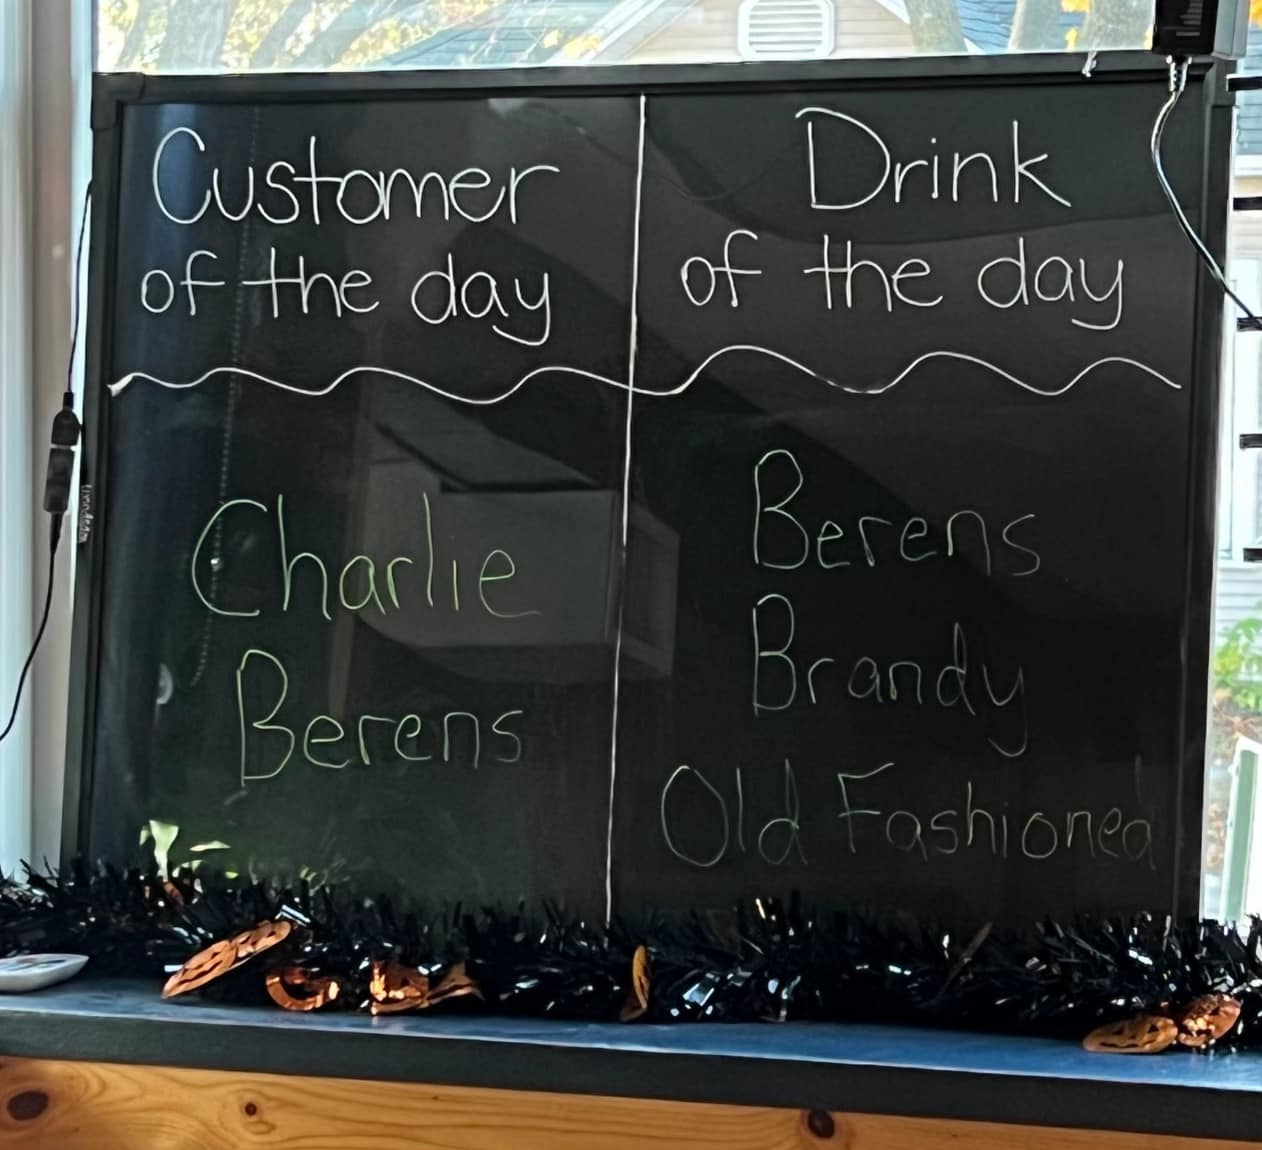 Customer
of the day
Charlie
Berens
Drink
of the day
Berens
Brandy
Old Fashioned